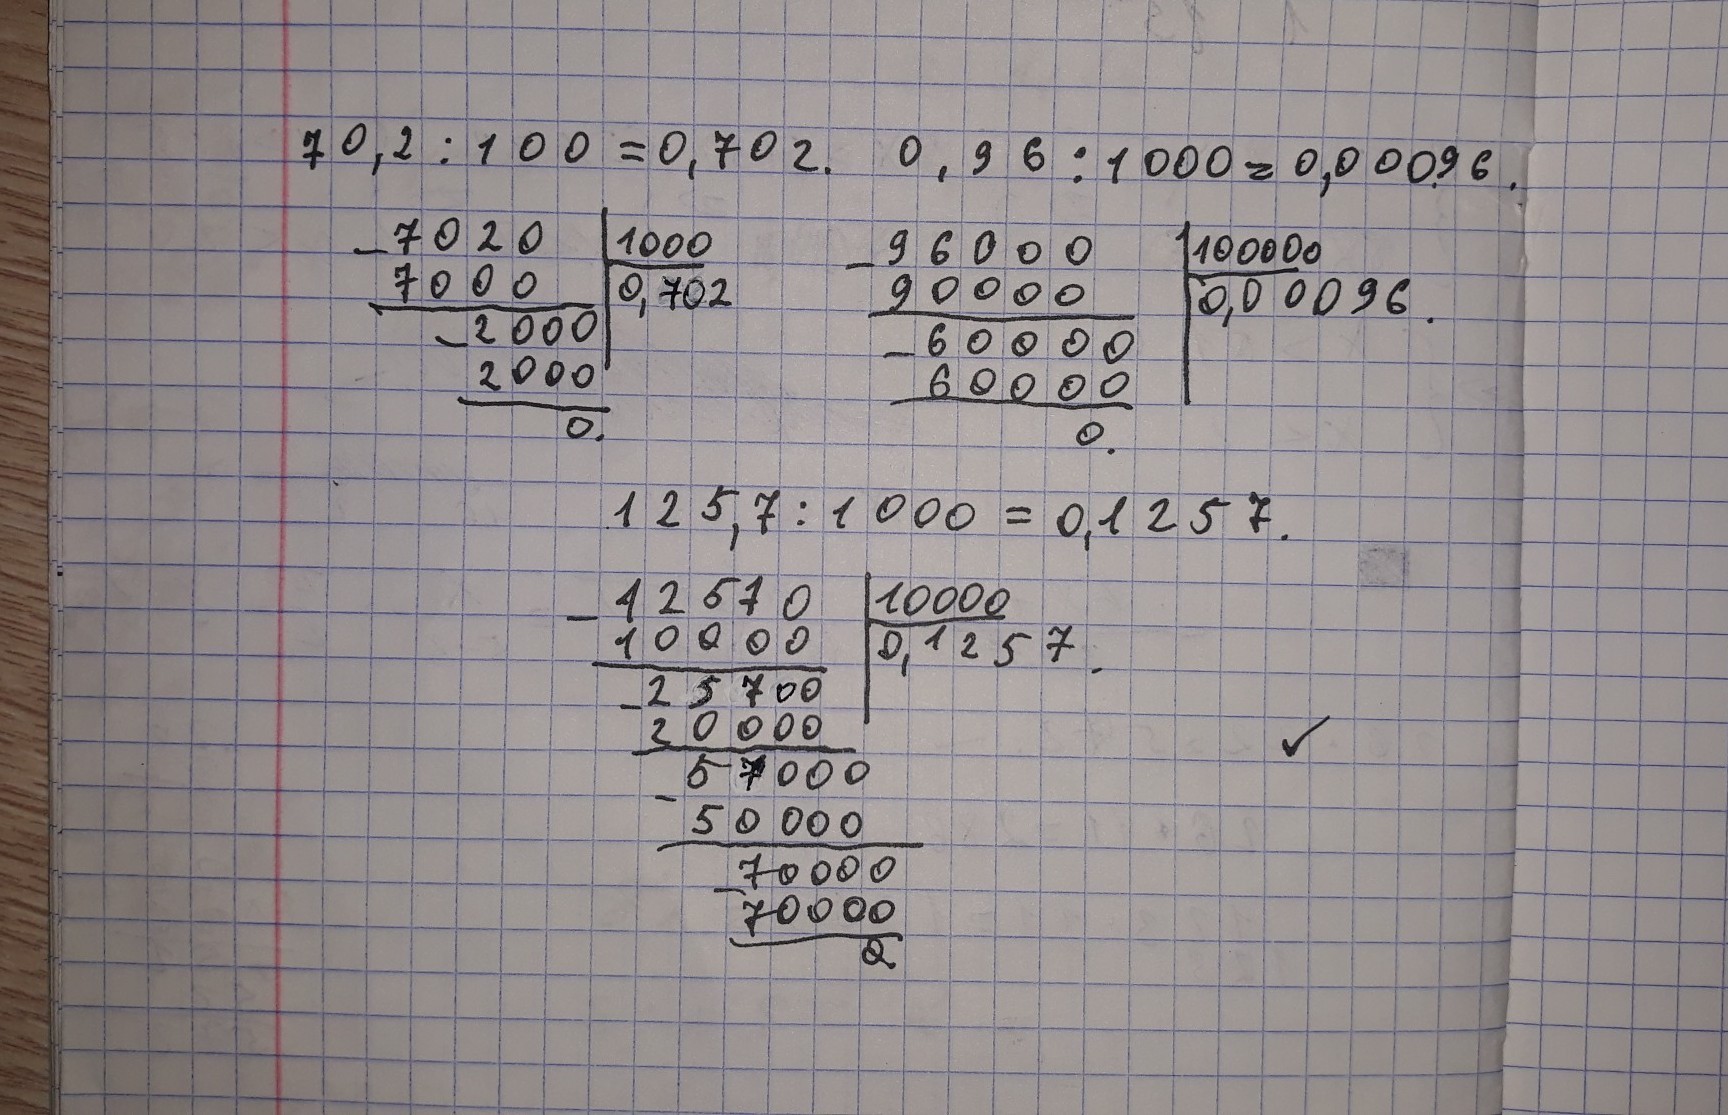 70,2:100=0,702. 0,96:1000=0,00096.
-7020 1000
7000 0,702
-2000
2000
0.
-96000 100000
90000 0,00096.
-60000
60000
0.
125,7:1000=0,1257.
-12570 10000
10000 0,1257.
-25700
20000
-57000
50000
-70000
70000
0